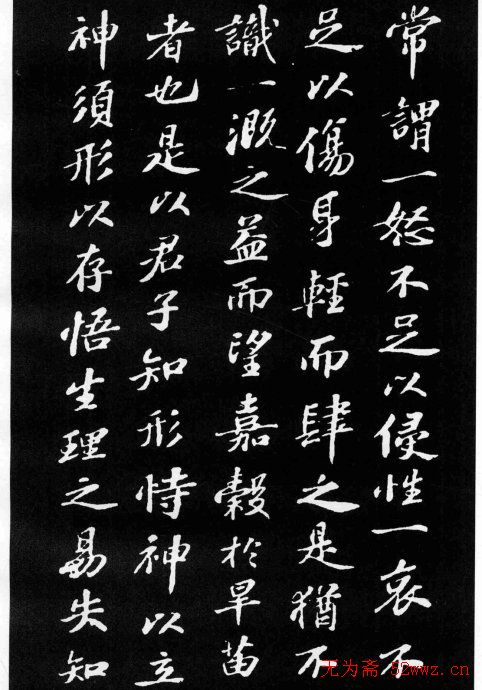 常謂一怒不足以侵性一哀不
足以傷身輕而肆之是猶不
識一溉之益而望嘉穀於旱苗
者也是以君子知形恃神以立
神須形以存悟生理之易失知
无为斋 52wwz.cn